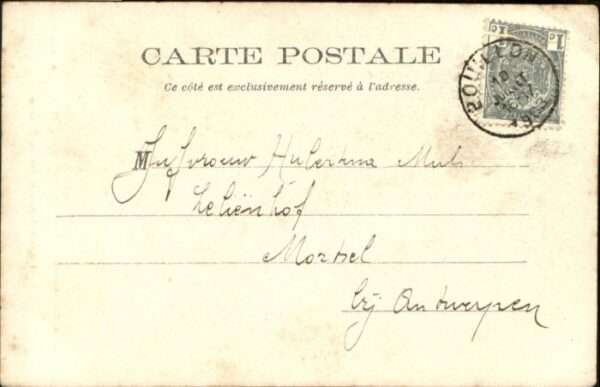 CARTE POSTALE
Ce côté est exclusivement réservé à l'adresse.
1c 1c
BOUILLON
18 AOUT
19
M Juffvrouw Hubertina Muls
Leliënhof
Mortsel
bij Antwerpen